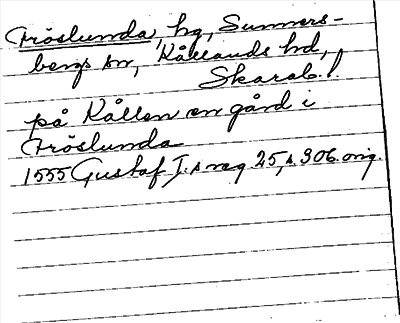 Fröslunda, hg, Sunners-
bergs sn, Kållands hd,
Skarab. l.
på Kållen en gård i
Fröslunda
1555 Gustaf I:s reg 25, s. 306. orig.